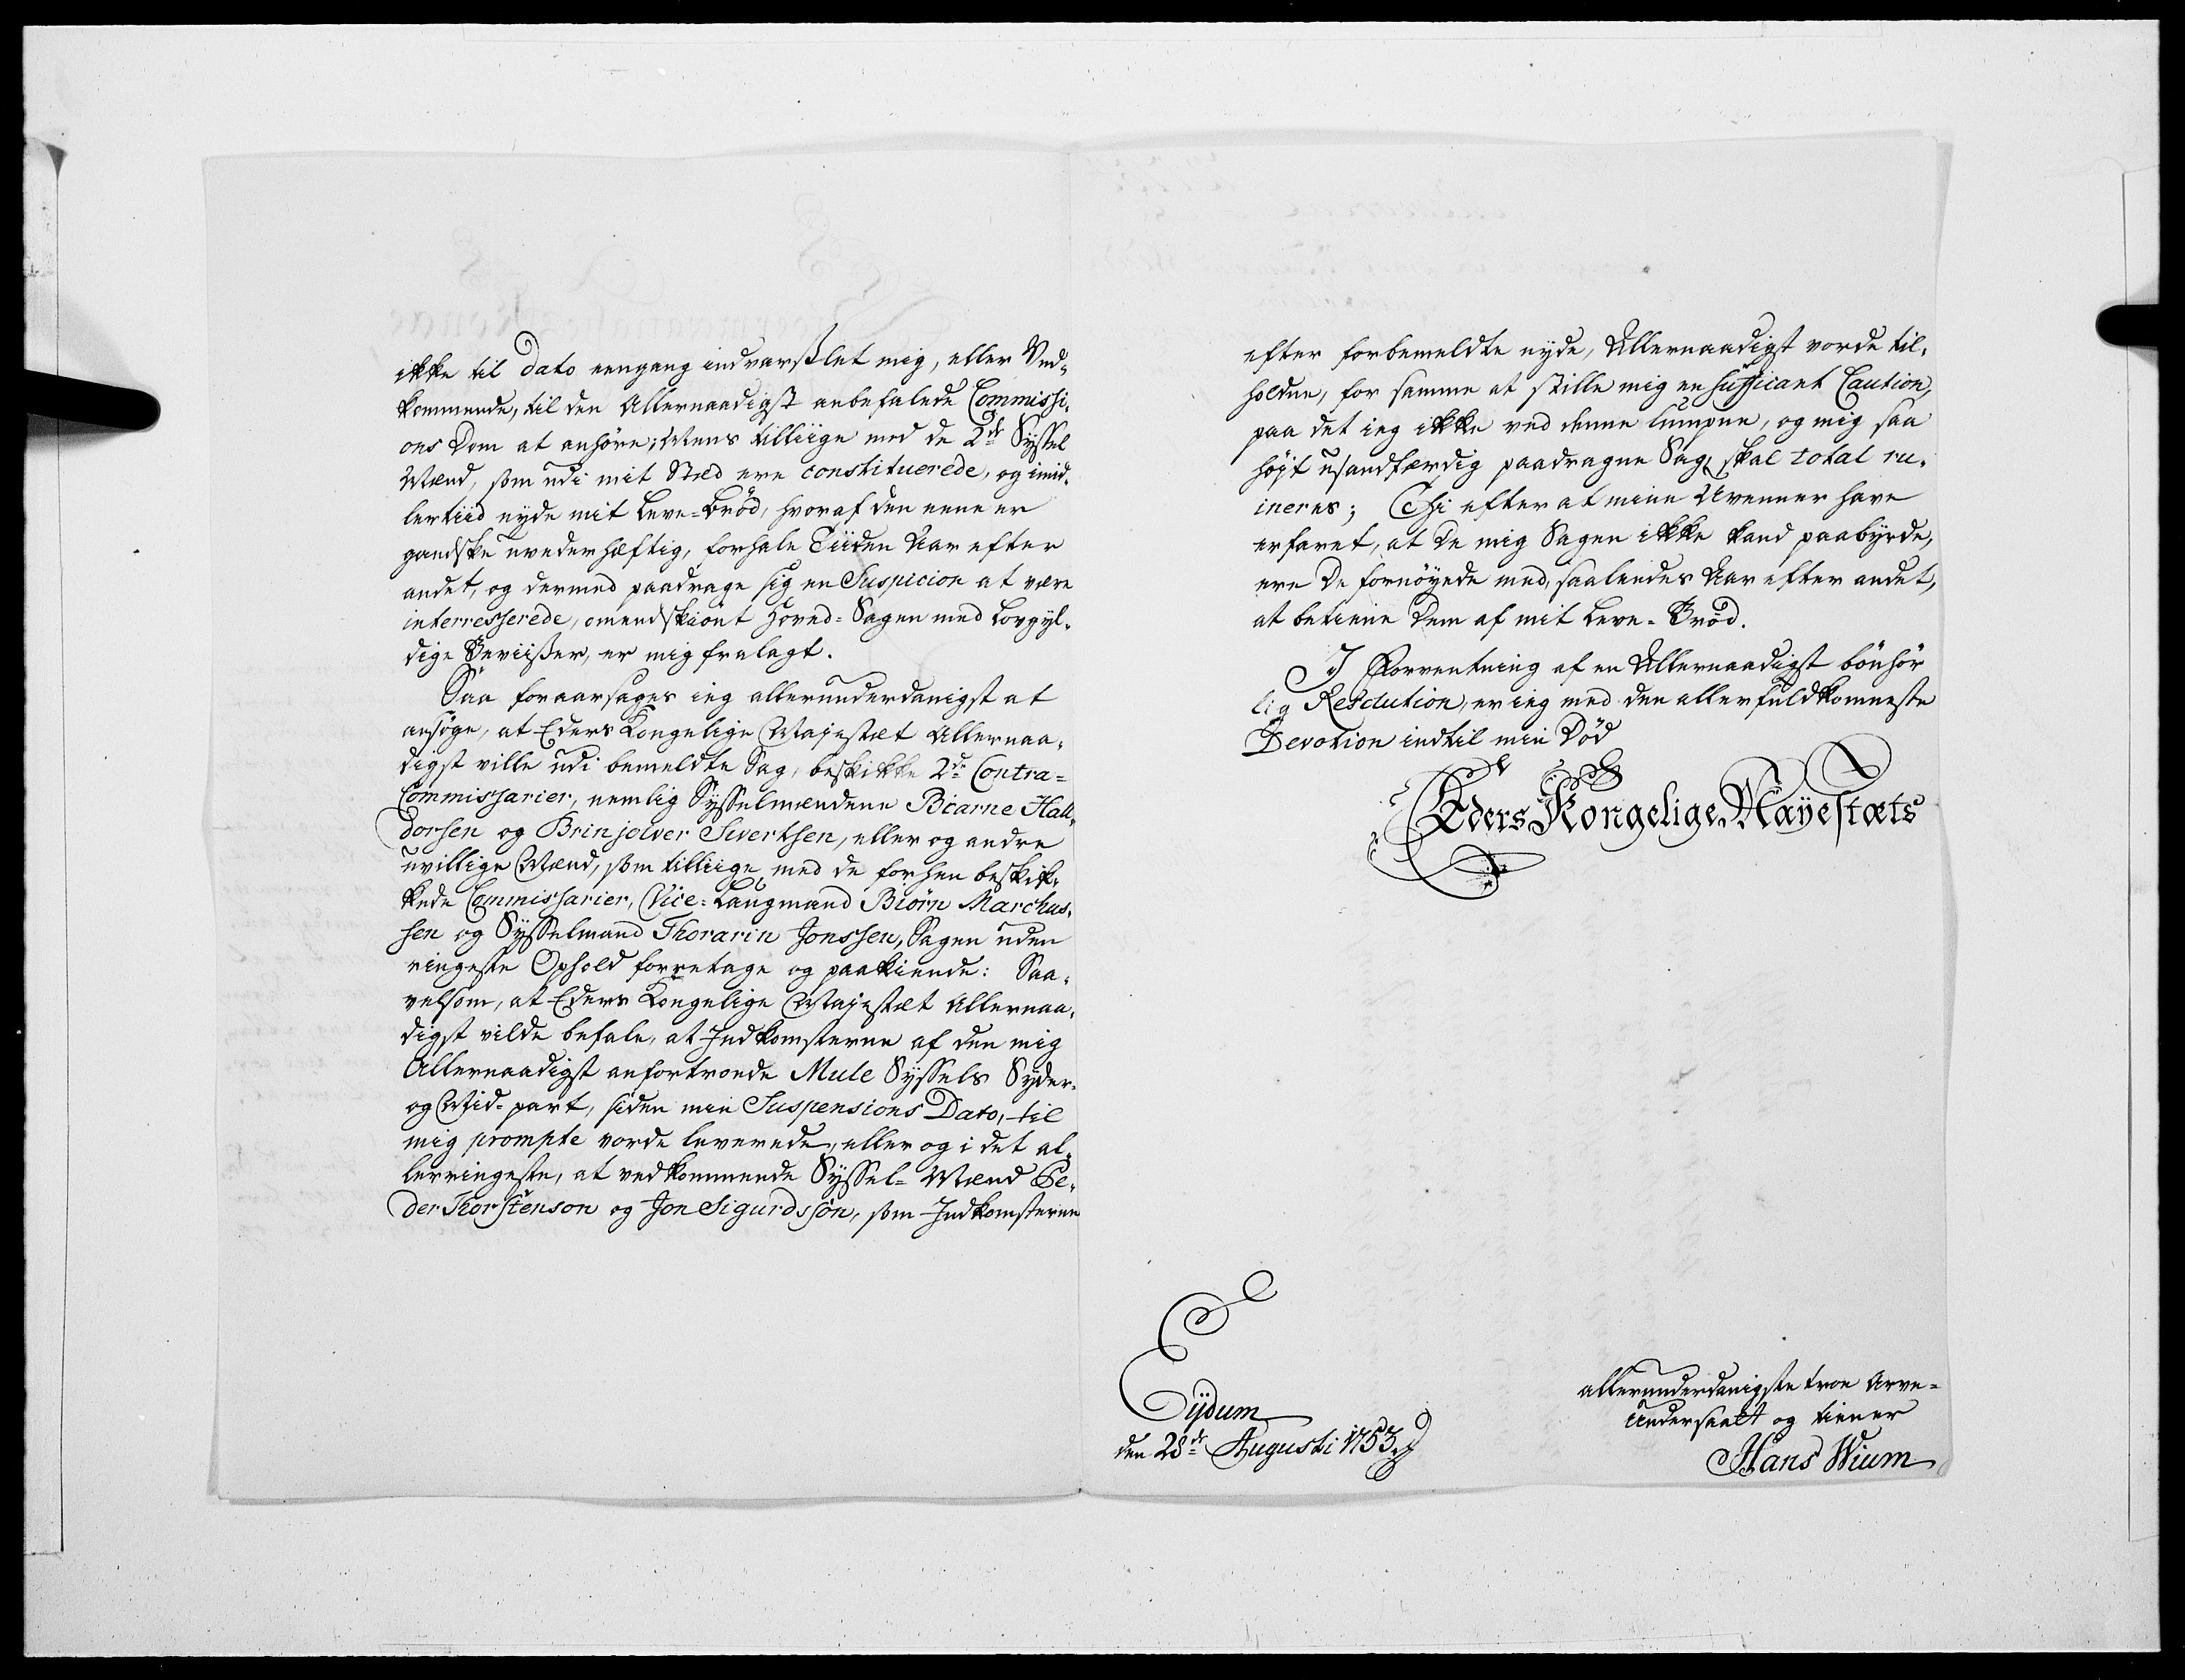 ikke til Dato eengang indvarslet mig, eller Ved-
kommende, til den Allernaadigst anbefalede Commissi-
ons Dom at anhöre; Mens tilliige med de 2de Syssel
Mænd, som udi mit Stæd ere constituerede, og imid-
lertiid nyde mit Leve-Bröd, hvoraf den eene er
gandske uvederhæftig, forhale Tiiden Aar efter
andet, og dermed paadrage sig en Suspicion at være
interresserede, omendskiönt Hoved-Sagen med Lovgyl-
dige Beviißer, er mig fralagt.
Saa foraarsages ieg allerunderdanigst at
ansöge, at Eders Kongelige Majestæt Allernaa-
digst ville udi bemeldte Sag, beskikke 2de Contra-
Commissarier, nemlig Sysselmændene Biarne Hall-
dorsen og Brinjolver Sivertsen, eller og andre
uvillige Mænd, som tilliige med de forhen beskik-
kede Commissarier, Vice-Laugmand Biörn Marchus-
sen og Sysselmand Thorarin Jonssen, Sagen uden
ringeste Ophold forretage og paakiende: Saa-
velsom, at Eders Kongelige Majestæt Allernaa-
digst vilde befale, at Indkomsterne af den mig
Allernaadigst anfortroede Mule Syssels Syder-
og Mid-part, siden min Suspensions Dato, til
mig prompte vorde leverede, eller og i det al-
lerringeste, at vedkommende Syssel-Mænd Pe-
der Thorstenson og Jon Sigurdssön, som Indkomsterne
efter forbemeldte nyde, Allernaadigst vorde til-
holdne, for samme at stille mig en suffisant Caution,
paa det ieg ikke ved denne lumpne, og mig saa
höjt usandfærdig paadragne Sag, skal total ru-
ineres; Thi efter at mine Uvenner have
erfaret, at De mig Sagen ikke kand paabyrde,
ere De fornöyede med, saaledes Aar efter andet,
at betiene Dem af mit Leve-Bröd.
I Forventning af en Allernaadigst bönhör
lig Resolution, er ieg med den allerfuldkomneste
Devotion indtil min Död
Eders Kongelige Mayestæts
Eydum
den 28de Augusti 1753
allerunderdanigste troe Arve-
Undersaatt og tiener
Hans Wium